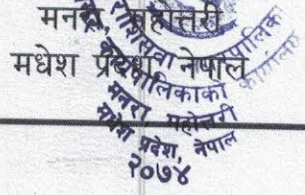 मनरा, महोत्तरी
मधेश प्रदेश, नेपाल
पालिकाको कार्यालय
मनरा महोत्तरी
मधेश प्रदेश, नेपाल
२०७४